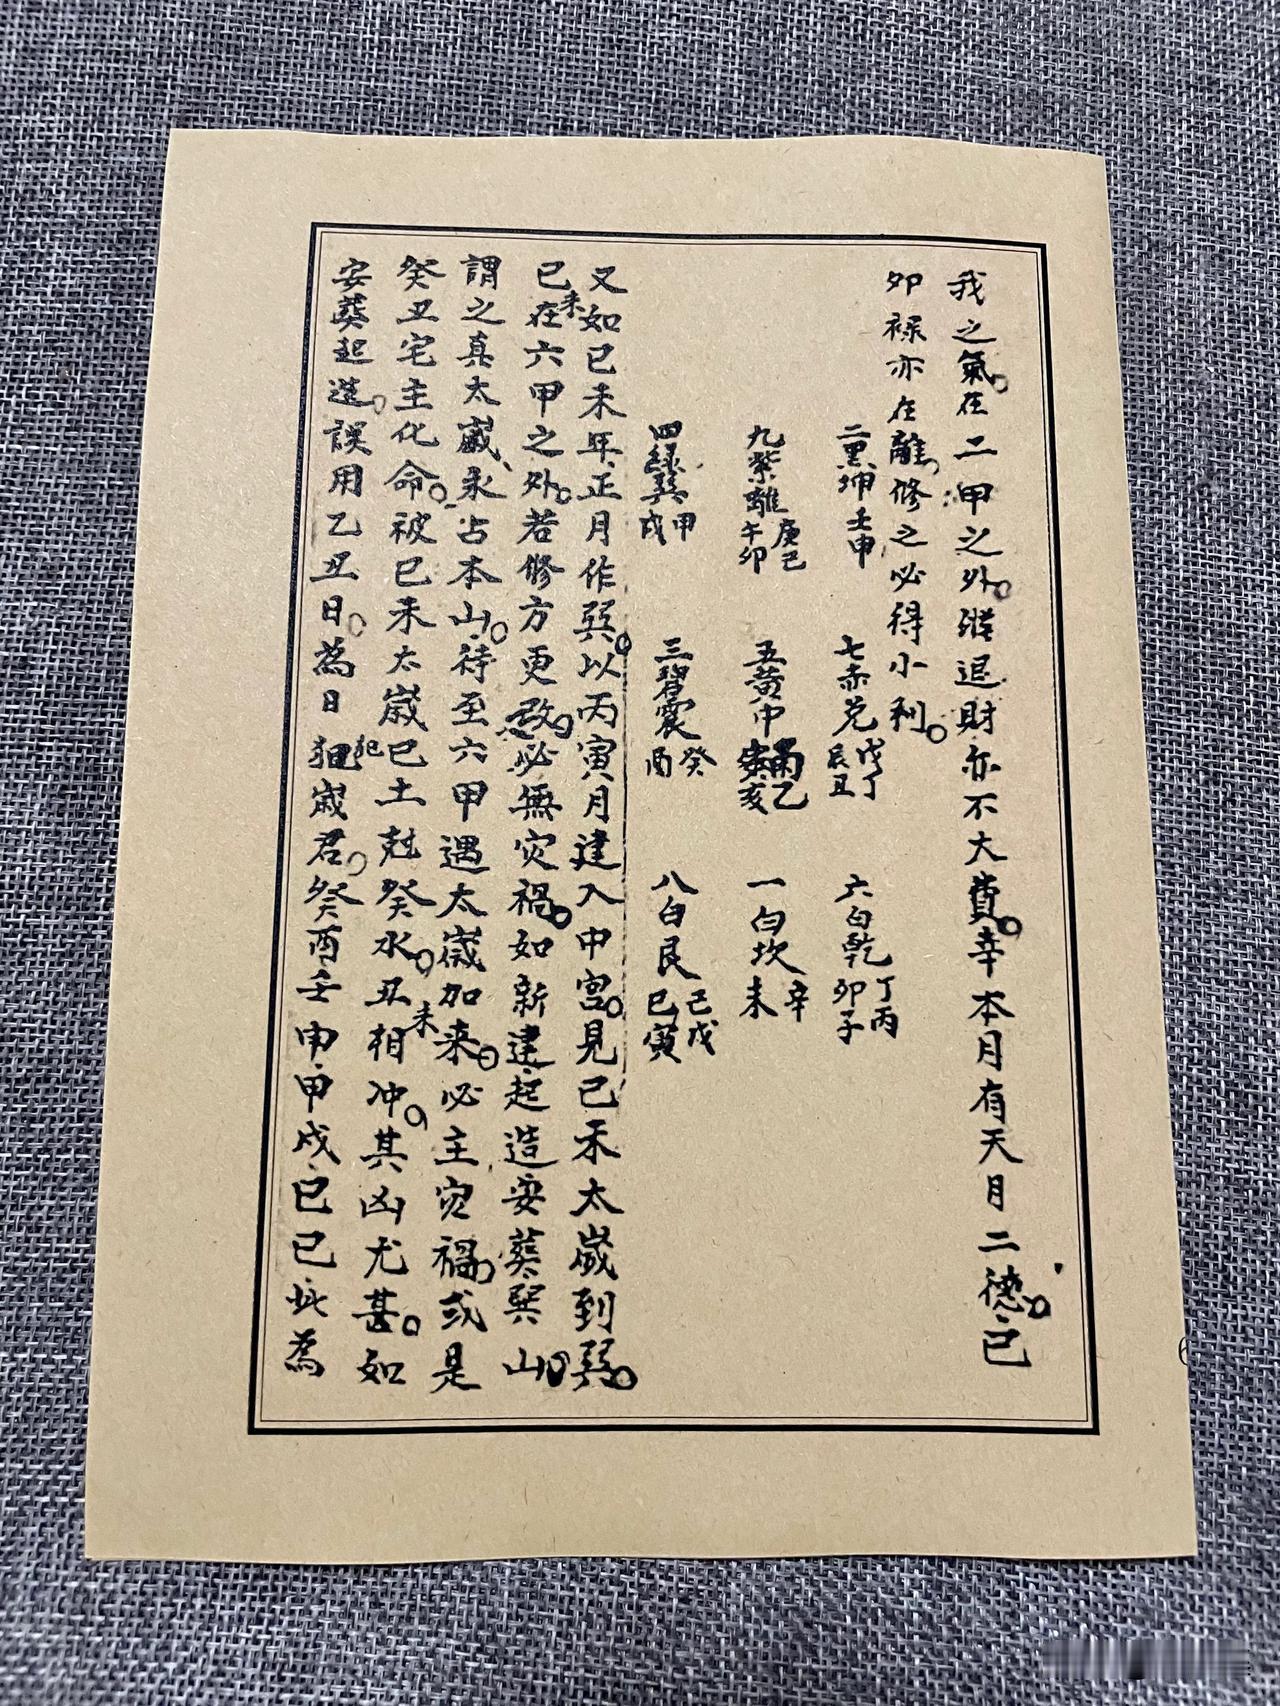 我之氣在二甲之外雖退財亦不大費幸本月有天月二德己
卯禄亦在離修之必得小利
二黑坤壬申
七赤兑戊丁辰丑
六白乾丁丙卯子
九紫離庚己午卯
五黄中丙乙寅亥
一白坎辛未
四緑巽甲戌
三碧震癸酉
八白艮己戊巳寅
又如己未年正月作巽以丙寅月建入中宫見己未太歲到巽
己未在六甲之外若修方更改必無灾禍如新建起造安葬巽山
謂之真太歲永占本山待至六甲遇太歲加来必主灾禍或是
癸丑宅主化命被己未太歲己土尅癸水丑未相冲其凶尤甚如
安葬起造誤用乙丑日為日犯歲君癸酉壬申甲戌己巳此為